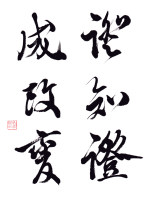 認知證
成改變